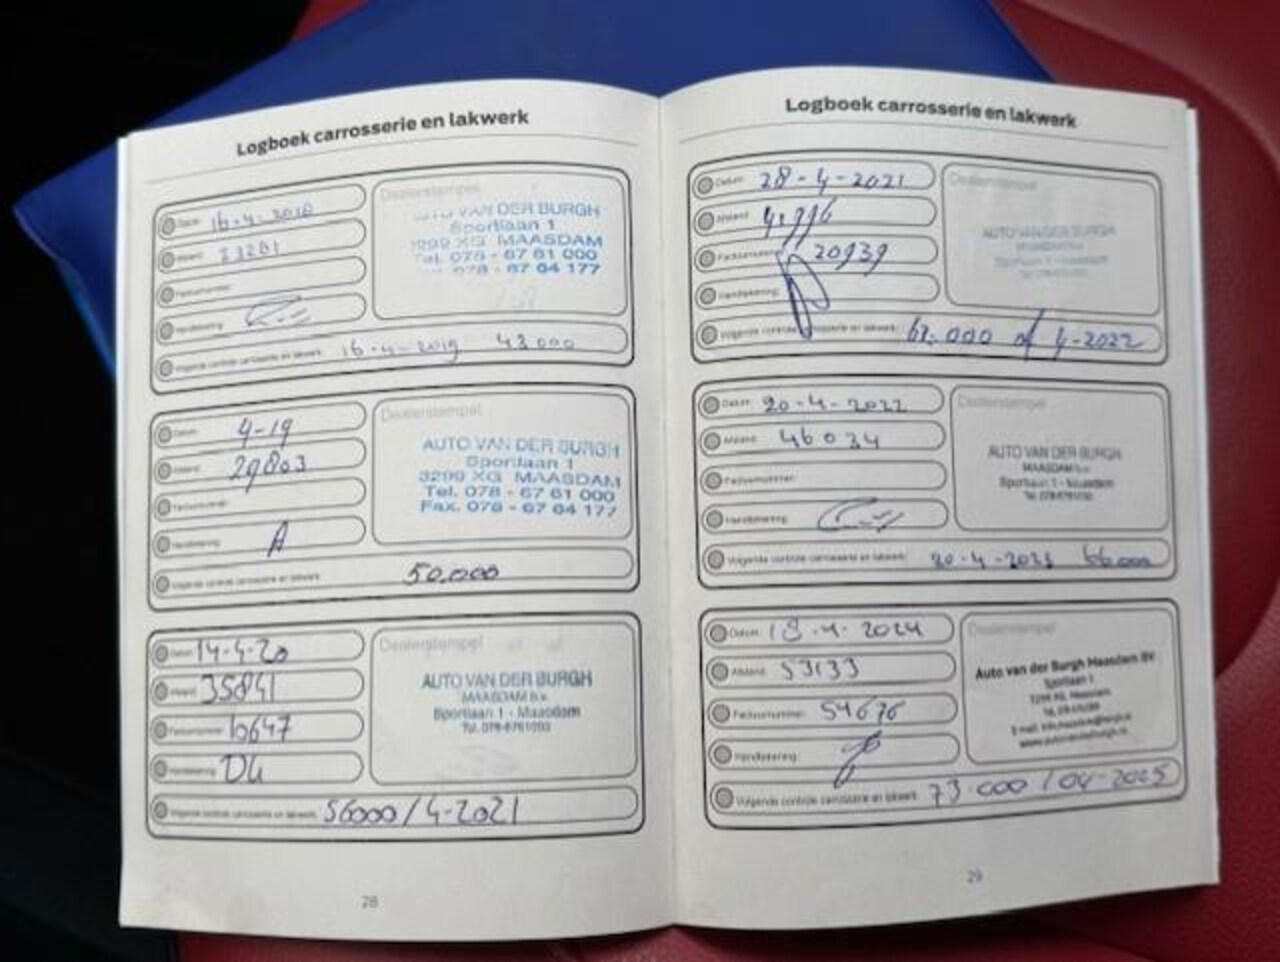 Logboek carrosserie en lakwerk
Datum: 16-4-2018
Afstand: 23281
Factuurnummer:
Handtekening:
Volgende controle carrosserie en lakwerk: 16-4-2019 43000
Dealerstempel
AUTO VAN DER BURGH
Sportlaan 1
3299 XG MAASDAM
Tel. 078 - 67 61 000
Fax. 078 - 67 64 177
Datum: 4-19
Afstand: 29803
Factuurnummer:
Handtekening:
Volgende controle carrosserie en lakwerk: 50.000
Dealerstempel
AUTO VAN DER BURGH
Sportlaan 1
3299 XG MAASDAM
Tel. 078 - 67 61 000
Fax. 078 - 67 64 177
Datum: 14-4-20
Afstand: 35841
Factuurnummer: 10647
Handtekening:
Volgende controle carrosserie en lakwerk: 56000/4-2021
Dealerstempel
AUTO VAN DER BURGH
MAASDAM b.v.
Sportlaan 1 - Maasdam
28
Logboek carrosserie en lakwerk
Datum: 28-4-2021
Afstand:
Factuurnummer: 20939
Handtekening:
Volgende controle carrosserie en lakwerk: of 4-2022
Dealerstempel
AUTO VAN DER BURGH
MAASDAM b.v.
Sportlaan 1 - Maasdam
Datum: 20-4-2022
Afstand: 46034
Factuurnummer:
Handtekening:
Volgende controle carrosserie en lakwerk: 20-4-2023 66.000
Dealerstempel
AUTO VAN DER BURGH
MAASDAM b.v.
Sportlaan 1 - Maasdam
Datum: 18-4-2024
Afstand: 53133
Factuurnummer: 54676
Handtekening:
Volgende controle carrosserie en lakwerk: 73 000 / 04-2025
Dealerstempel
Auto van der Burgh Maasdam BV
Sportlaan 1
3299 XG Maasdam
29